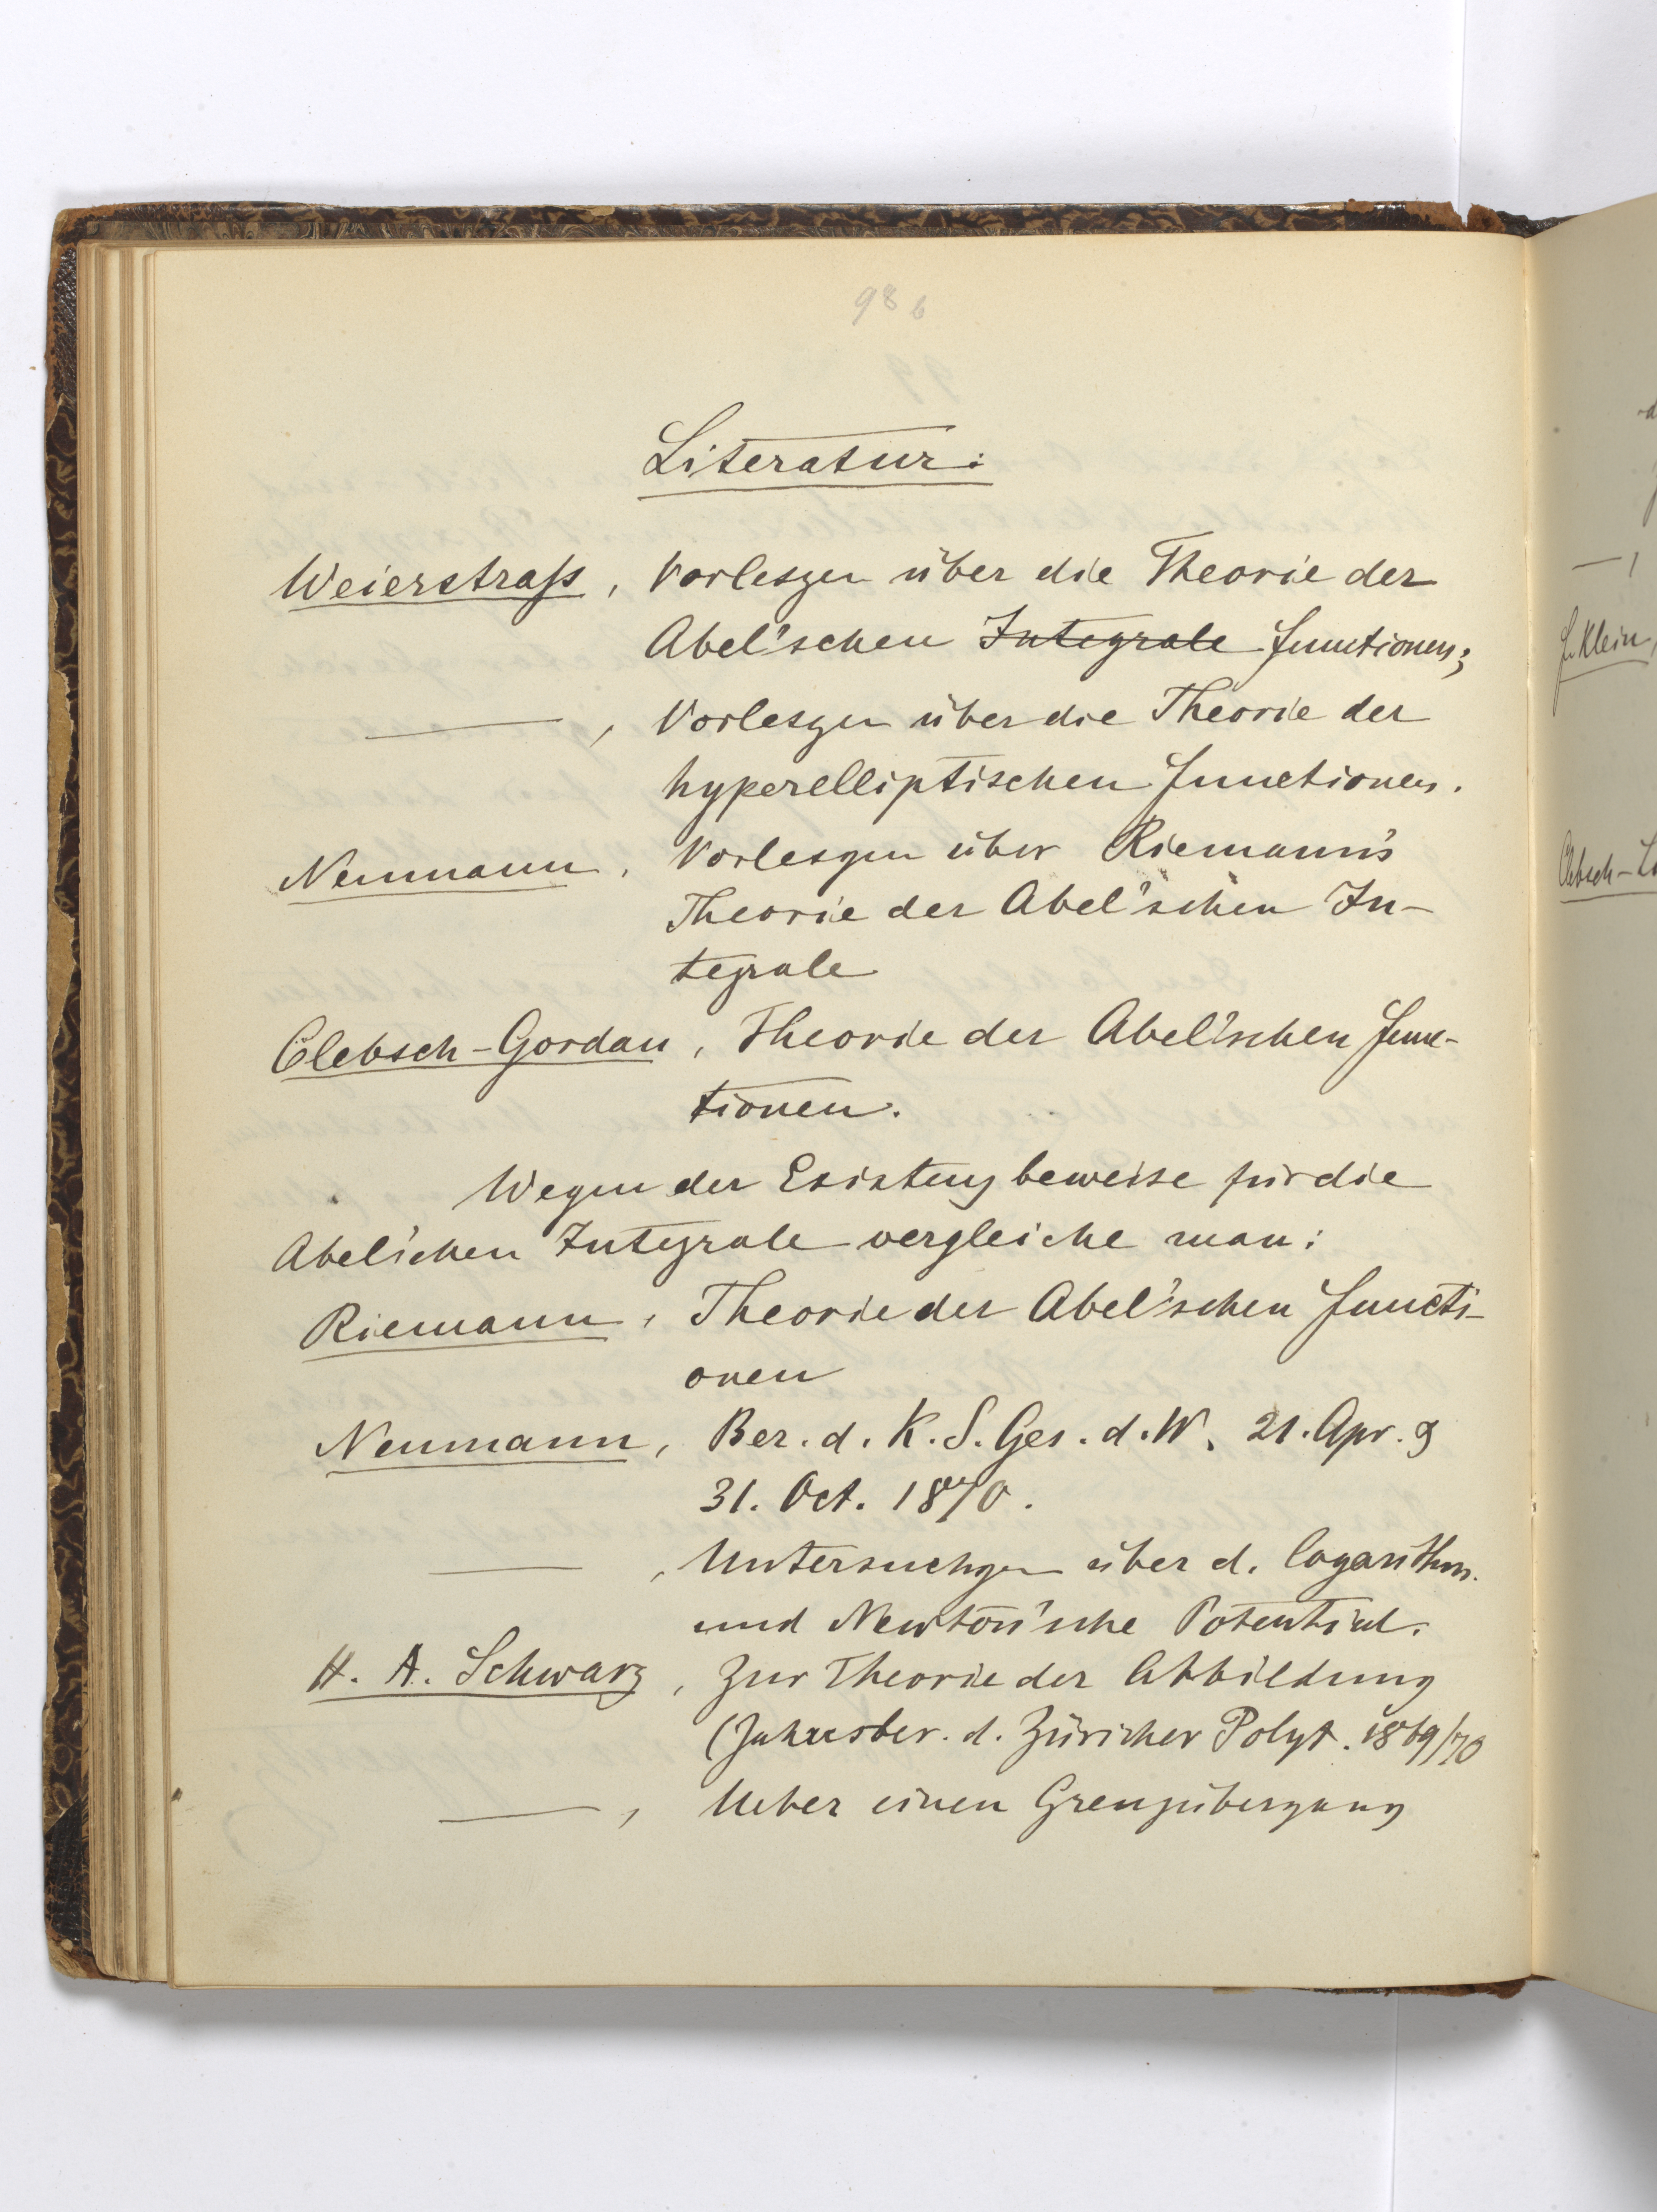 98 b
Literatur:
Weierstraß, Vorlesgen über die Theorie der
Abel'schen Integrale Functionen;
—, Vorlesgen über die Theorie der
hyperelliptischen Functionen.
Neumann, Vorlesgen über Riemann's
Theorie der Abel'schen In-
tegrale
Clebsch-Gordan, Theorie der Abel'schen Func-
tionen.
Wegen der Existenzbeweise für die
Abel'schen Integrale vergleiche man:
Riemann, Theorie der Abel'schen Functi-
onen
Neumann, Ber. d. K. S. Ges. d. W. 21. Apr. &
31. Oct. 1870.
—, Untersuchgen über d. logarithm.
und Newton'sche Potential.
H. A. Schwarz, Zur Theorie der Abbildung
(Jahresber. d. Züricher Polyt. 1869/70
—, Ueber einen Grenzübergang
F. Klein,
Clebsch-